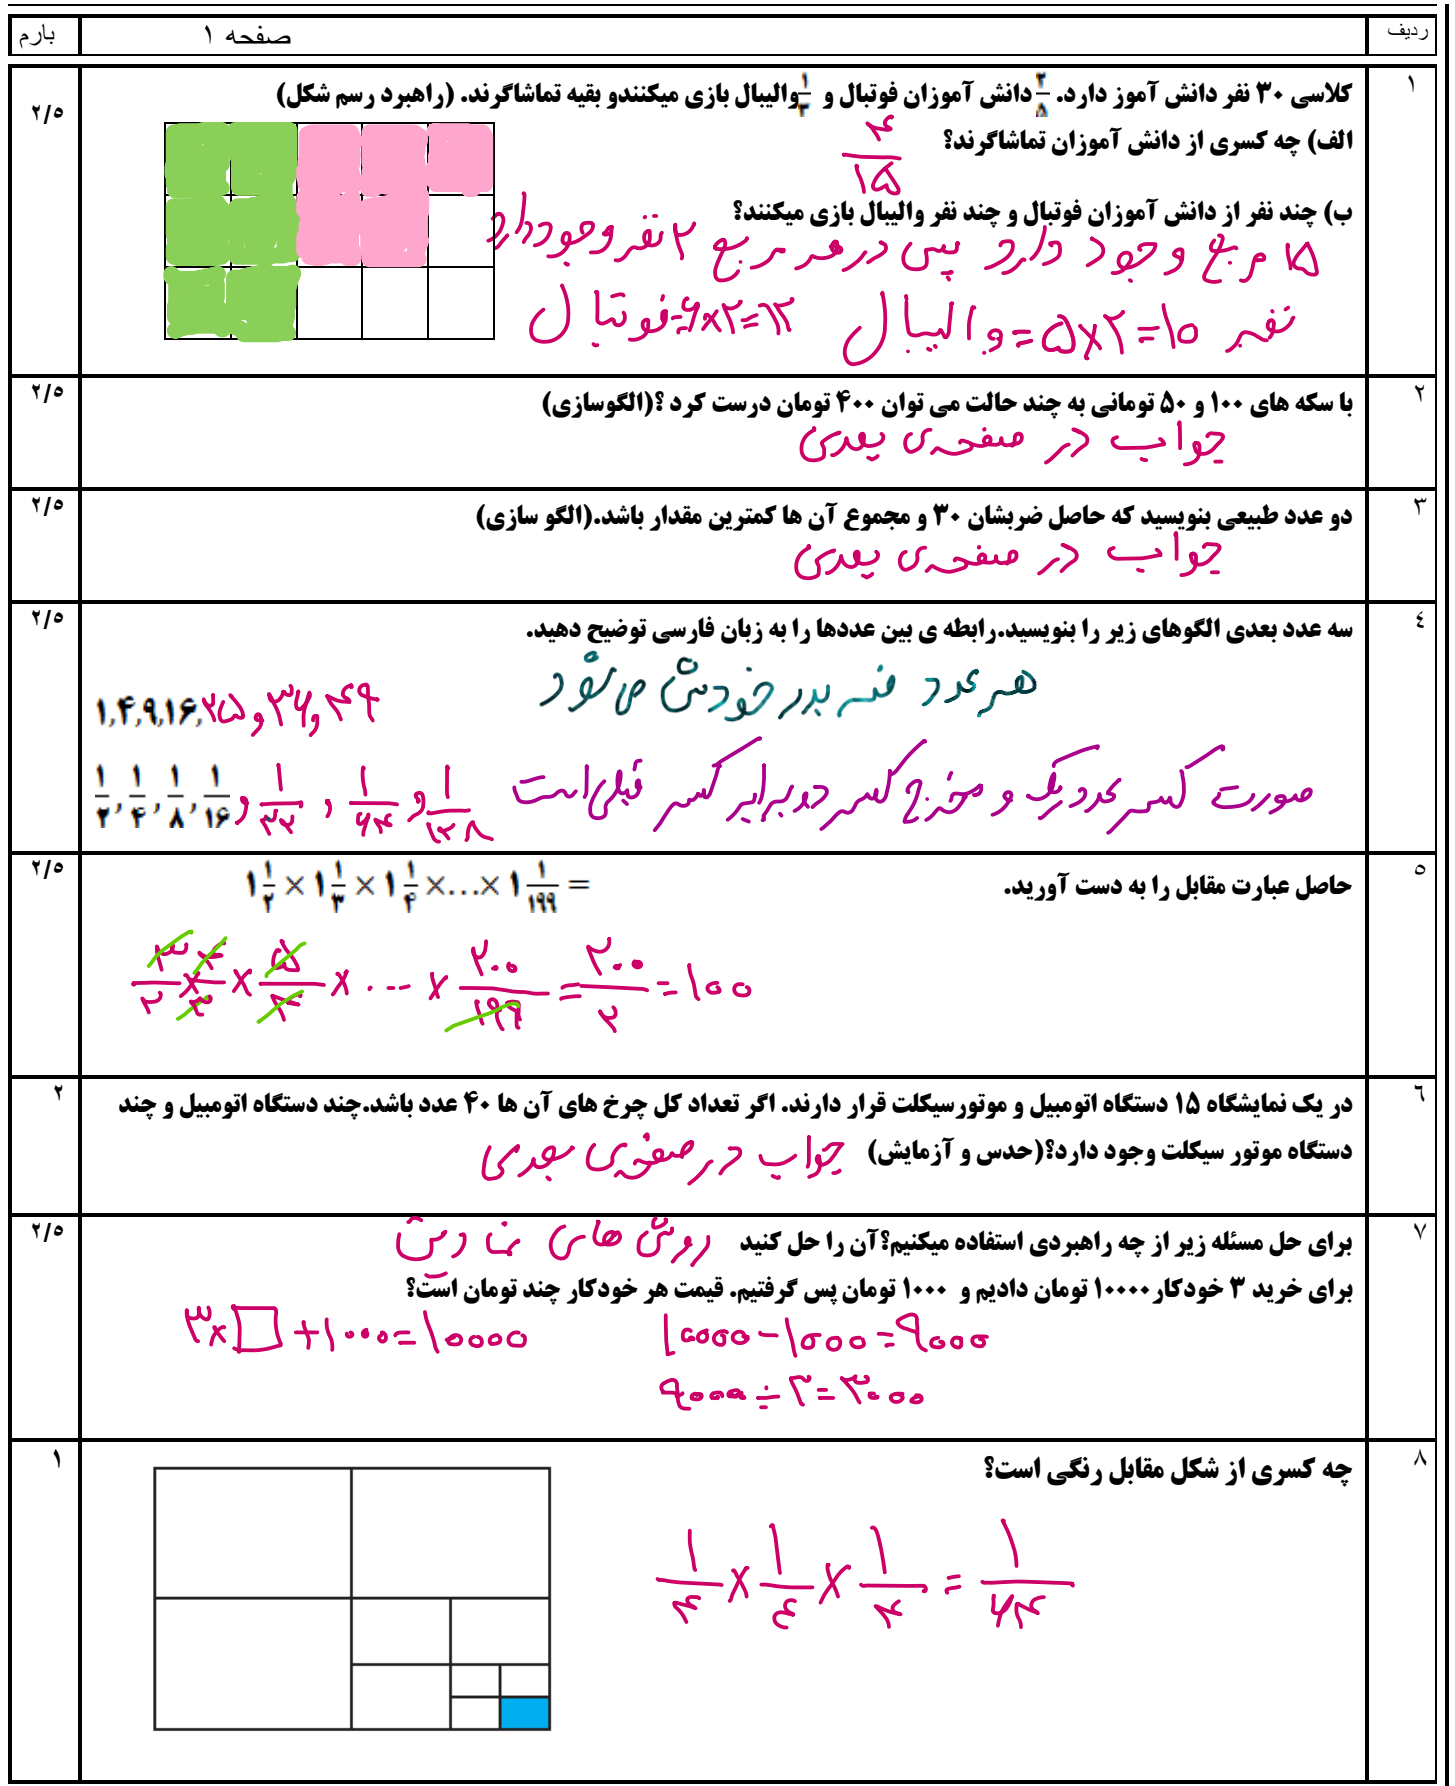 ردیف صفحه ۱ بارم
۱ کلاسی ۳۰ نفر دانش آموز دارد. ۲/۵ دانش آموزان فوتبال و ۱/۳ والیبال بازی میکنندو بقیه تماشاگرند. (راهبرد رسم شکل) ۲/۵
الف) چه کسری از دانش آموزان تماشاگرند؟ ۴/۱۵
ب) چند نفر از دانش آموزان فوتبال و چند نفر والیبال بازی میکنند؟
۱۵ مربع وجود دارد پس در هر مربع ۲ نفر وجود دارد
نفر ۱۰=۲×۵= والیبال ۱۲=۲×۶=فوتبال
۲ با سکه های ۱۰۰ و ۵۰ تومانی به چند حالت می توان ۴۰۰ تومان درست کرد ؟(الگوسازی) ۲/۵
جواب در صفحه‌ی بعدی
۳ دو عدد طبیعی بنویسید که حاصل ضربشان ۳۰ و مجموع آن ها کمترین مقدار باشد.(الگو سازی) ۲/۵
جواب در صفحه‌ی بعدی
٤ سه عدد بعدی الگوهای زیر را بنویسید.رابطه ی بین عددها را به زبان فارسی توضیح دهید. ۲/۵
هر عدد ضربدر خودش می‌شود
۱,۴,۹,۱۶,۲۵و۳۶و۴۹
صورت کسر عدد یک و مخرج کسر دو برابر کسر قبلی است
۱/۲ , ۱/۴ , ۱/۸ , ۱/۱۶ و ۱/۳۲ , ۱/۶۴ و ۱/۱۲۸
٥ حاصل عبارت مقابل را به دست آورید. ۱ ۱/۲ × ۱ ۱/۳ × ۱ ۱/۴ ×...× ۱ ۱/۱۹۹ = ۲/۵
۳/۲ × ۴/۳ × ۵/۴ × ... × ۲۰۰/۱۹۹ = ۲۰۰/۲ = ۱۰۰
٦ در یک نمایشگاه ۱۵ دستگاه اتومبیل و موتورسیکلت قرار دارند. اگر تعداد کل چرخ های آن ها ۴۰ عدد باشد.چند دستگاه اتومبیل و چند ۲
دستگاه موتور سیکلت وجود دارد؟(حدس و آزمایش) جواب در صفحه‌ی بعدی
۷ برای حل مسئله زیر از چه راهبردی استفاده میکنیم؟آن را حل کنید روش های نمادین ۲/۵
برای خرید ۳ خودکار۱۰۰۰۰ تومان دادیم و ۱۰۰۰ تومان پس گرفتیم. قیمت هر خودکار چند تومان است؟
۳×□+۱۰۰۰=۱۰۰۰۰ ۱۰۰۰۰-۱۰۰۰=۹۰۰۰
۹۰۰۰÷۳=۳۰۰۰
۸ چه کسری از شکل مقابل رنگی است؟ ۱
۱/۴ × ۱/۴ × ۱/۴ = ۱/۶۴